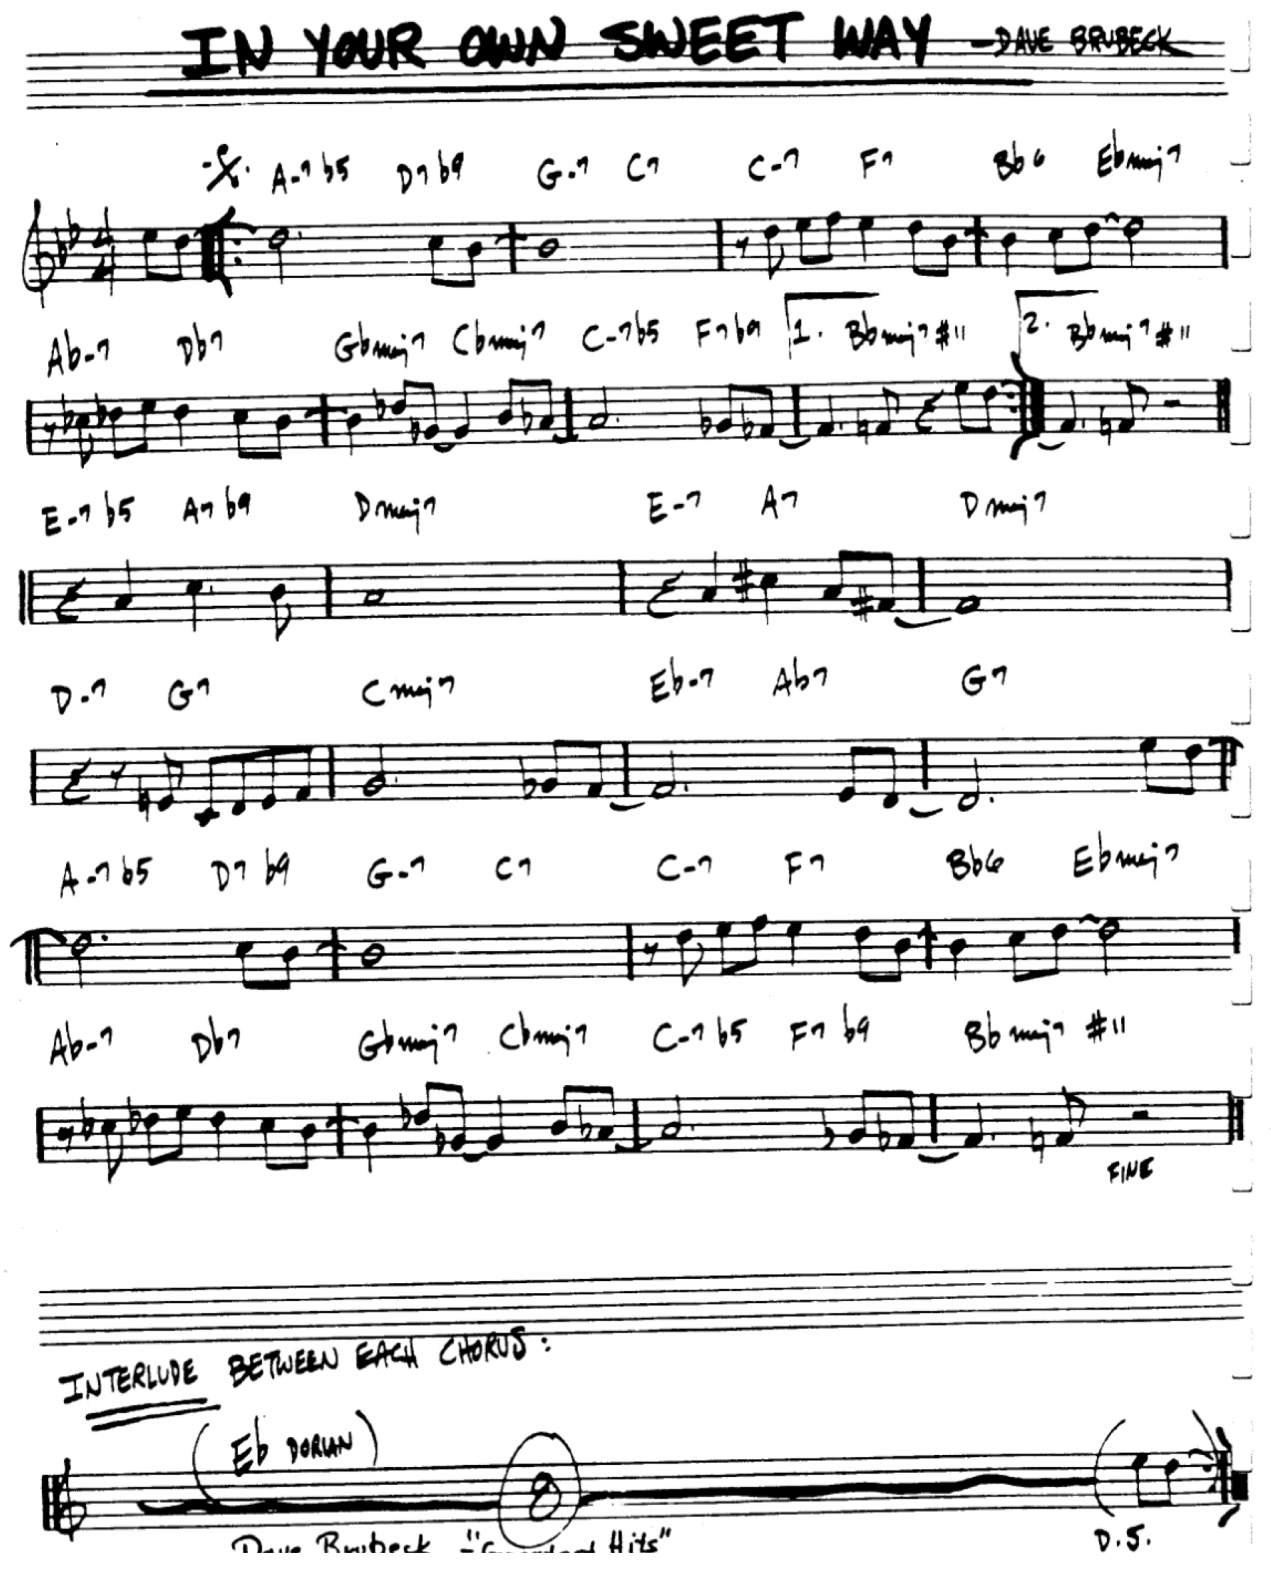 IN YOUR OWN SWEET WAY -DAVE BRUBECK
A-7 b5 D7 b9 G-7 C7 C-7 F7 Bb6 Ebmaj7
Ab-7 Db7 Gbmaj7 Cbmaj7 C-7b5 F7b9 1. Bbmaj7#11 2. Bbmaj7#11
E-7 b5 A7 b9 Dmaj7 E-7 A7 Dmaj7
D-7 G7 Cmaj7 Eb-7 Ab7 G7
A-7 b5 D7 b9 G-7 C7 C-7 F7 Bb6 Ebmaj7
Ab-7 Db7 Gbmaj7 Cbmaj7 C-7 b5 F7 b9 Bbmaj7 #11
FINE
INTERLUDE BETWEEN EACH CHORUS:
(Eb DORIAN)
8
D.S.
Dave Brubeck - "Greatest Hits"